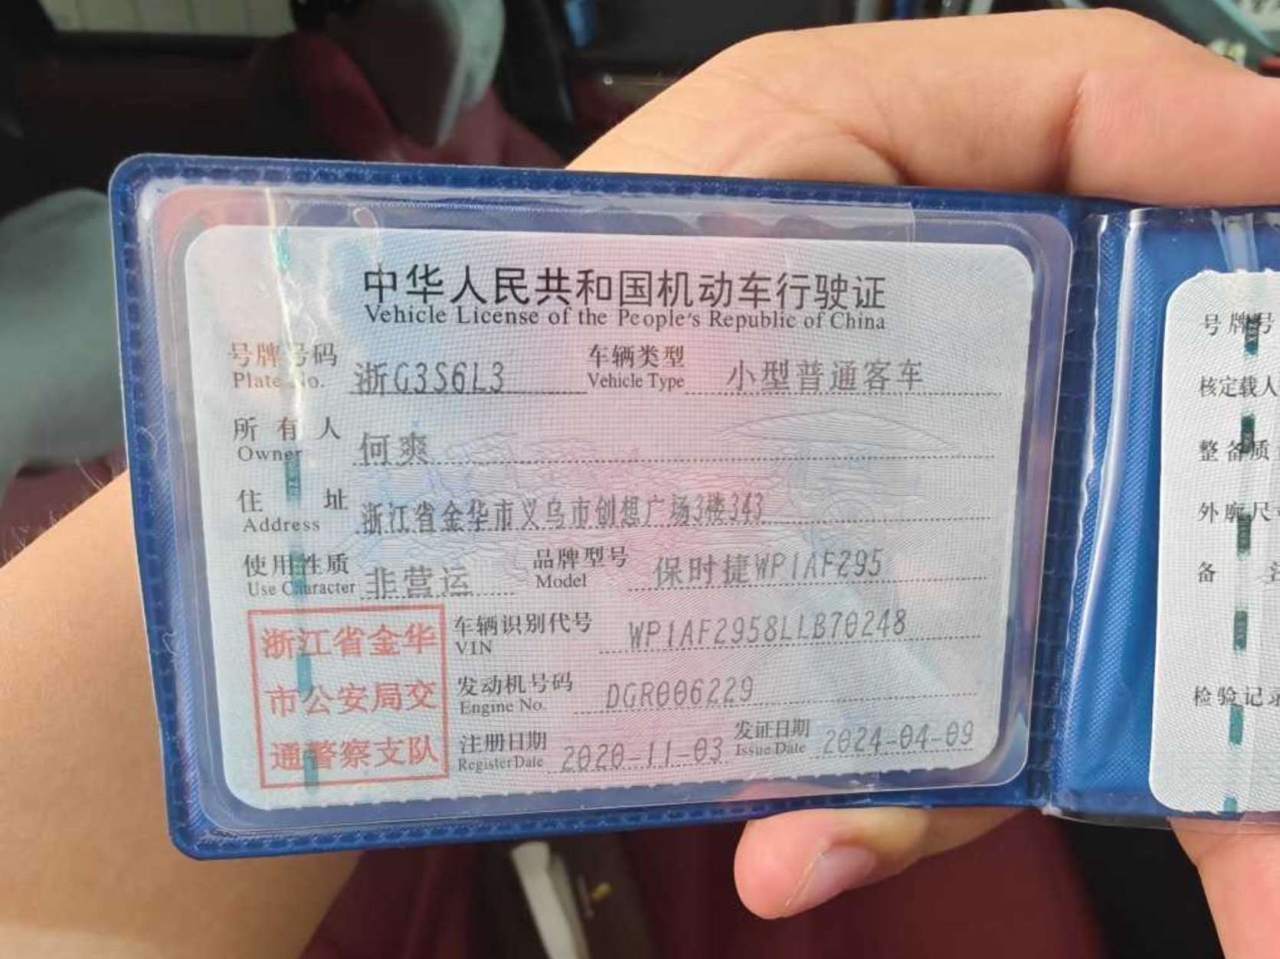 中华人民共和国机动车行驶证
Vehicle License of the People's Republic of China
号牌号码 浙G3S6L3 车辆类型 小型普通客车
Plate No. Vehicle Type
所有人 何爽
Owner
住址 浙江省金华市义乌市创想广场3楼343
Address
使用性质 非营运 品牌型号 保时捷WP1AF295
Use Character Model
浙江省金华
市公安局交
通警察支队
车辆识别代号 WP1AF2958LLB70248
VIN
发动机号码 DGR006229
Engine No.
注册日期 2020-11-03 发证日期 2024-04-09
Register Date Issue Date
号牌号
核定载人
整备质
外廓尺
备
检验记录